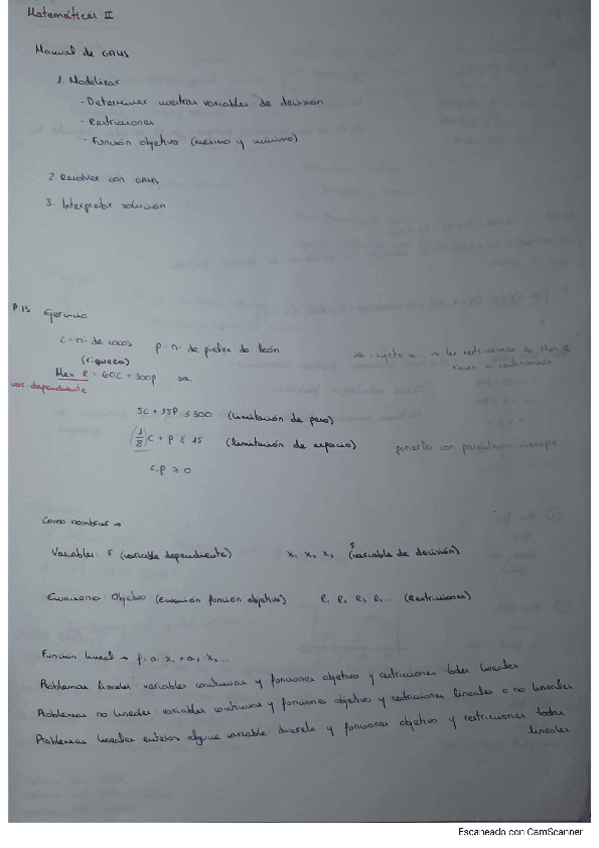 Matemáticas II
Manual de GAMS
1. Modelizar
- Determinar nuestras variables de decisión
- Restricciones
- Función objetivo (máximo y mínimo)
2. Resolver con GAMS
3. Interpretar solución
P.13 Ejercicio
C = nº de cocos p = nº de pieles de león
(riqueza)
Max R = 60C + 300p sa
var. dependiente
sa = sujeto a → las restricciones de Max R
vienen a continuación
5C + 15P ≤ 300 (limitación de peso)
(1/8)C + P ≤ 15 (limitación de espacio) ponerlo con paréntesis siempre
C,P ≥ 0
Como nombrar →
Variables: F (variable dependiente) X₁ X₂ X₃ (variable de decisión)
Ecuaciones: Objetivo (ecuación función objetivo) R₁ R₂ R₃ R... (Restricciones)
Función lineal → f = a₁ · x₁ + a₂ · x₂ ...
Problemas lineales: variables continuas y funciones objetivo y restricciones todas lineales
Problemas no lineales: variables continuas y funciones objetivo y restricciones lineales o no lineales
Problemas lineales enteros alguna variable discreta y funciones objetivo y restricciones todas
lineales
Escaneado con CamScanner